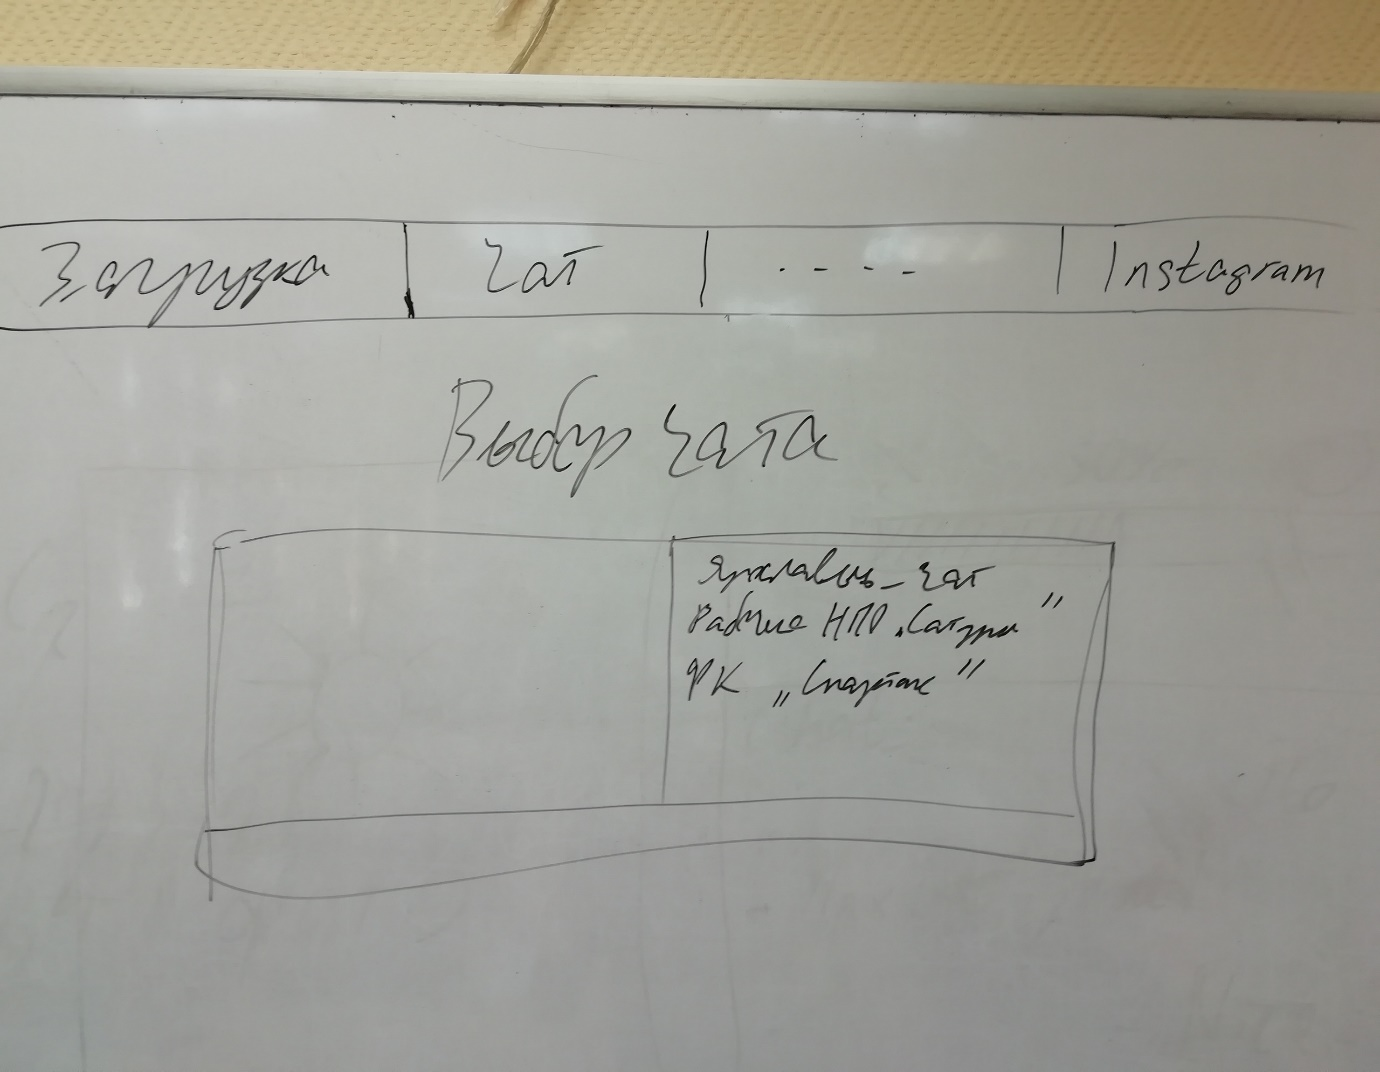 Загрузка Чат - - - - Instagram
Выбор чата
Ярославль_чат
Рабочие НПО „Сатурн"
ФК „Спартак"